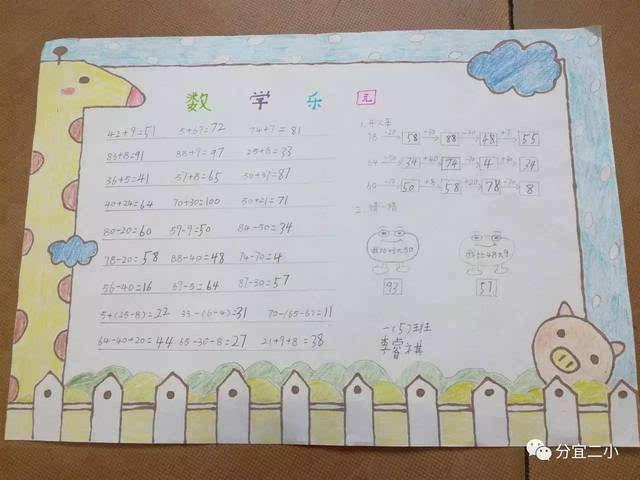 数学乐园
42+9=51 5+67=72 74+7=81
83+8=91 88+9=97 25+8=33
36+5=41 57+8=65 50+37=87
40+24=64 70+30=100 50+21=71
80-20=60 59-9=50 84-50=34
78-20=58 88-40=48 74-70=4
56-40=16 69-5=64 87-30=57
5+(25-8)=22 33-(6-4)=31 70-(65-6)=11
64-40+20=44 65-30-8=27 21+9+8=38
1.
78 -20 58 +30 88 -40 48 +7 55
64 -30 34 +40 74 -70 4 +30 34
60 -10 50 +8 58 +20 78 -70 8
2.猜一猜
我比43大50
我比48大9
93
57
一(5)班
李睿祺
分宜二小